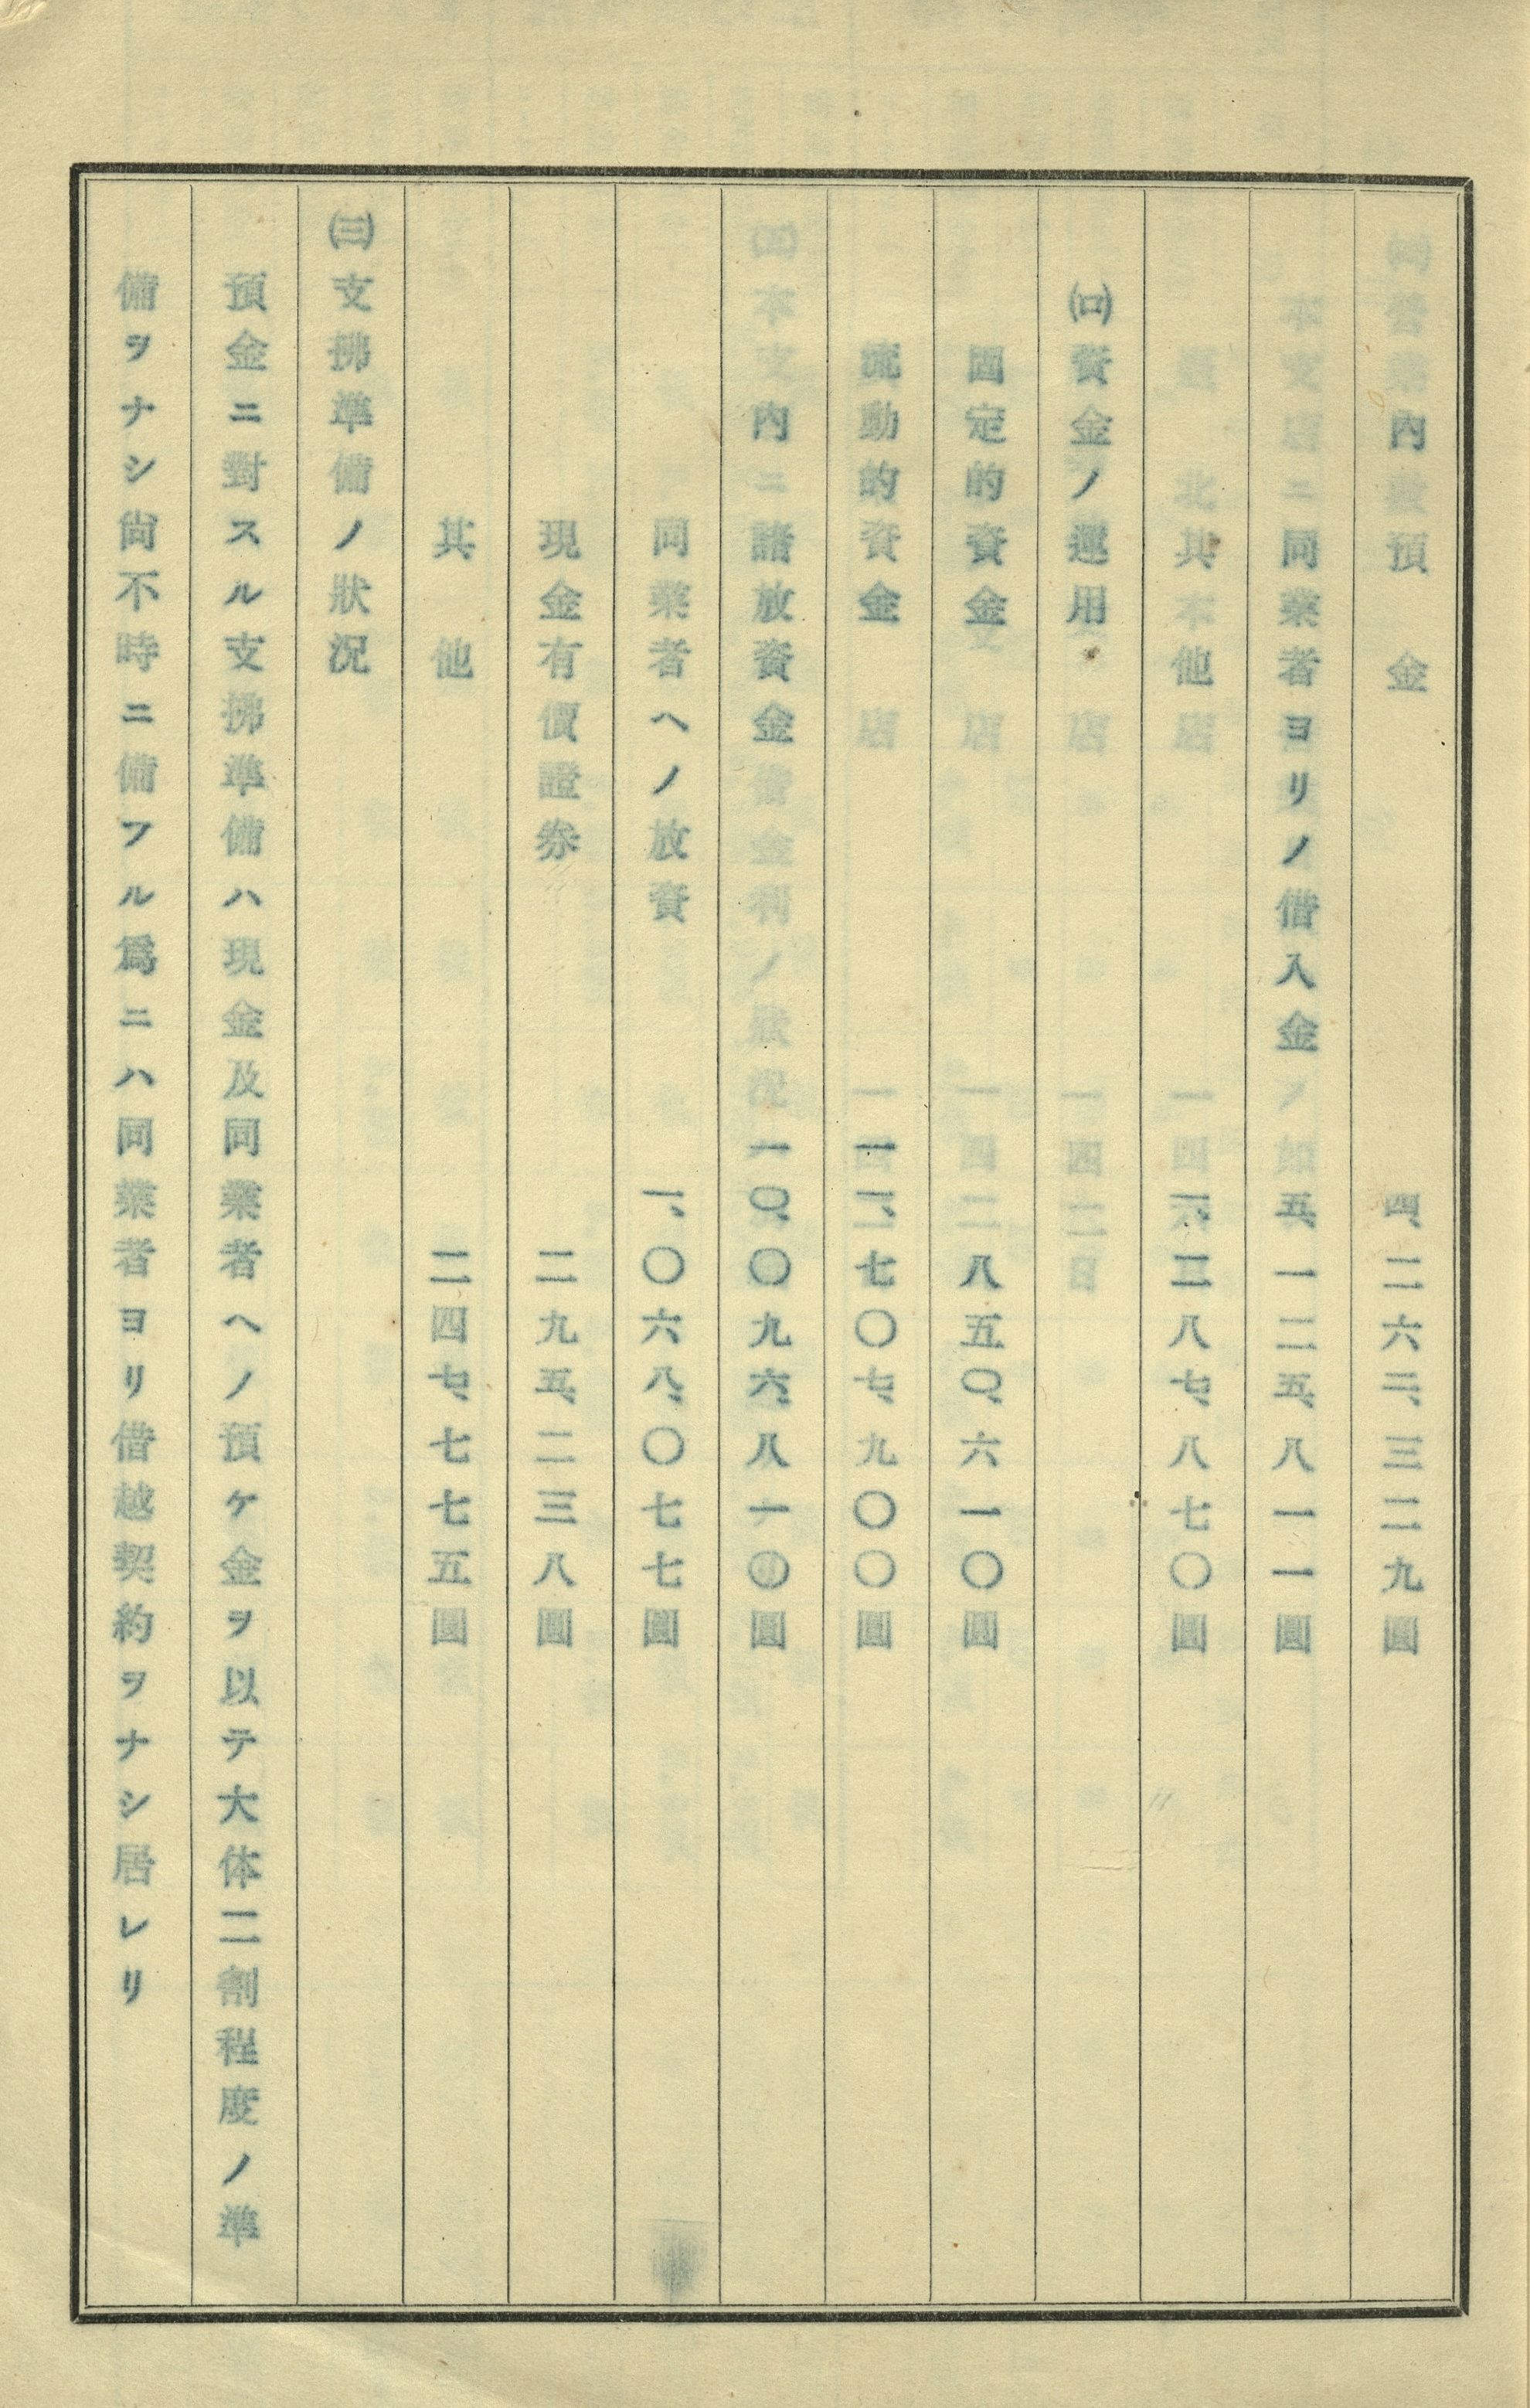 內 預金 四、二六二、三二九圓
同業者ヨリノ借入金 五、一二五、八一一圓
其他 一、二八七、八七〇圓
(ロ)資金ノ運用
固定的資金 八五〇、六一〇圓
流動的資金 一一、七〇七、九〇〇圓
內 諸放資金 一〇、〇九六、八一〇圓
同業者ヘノ放資 一、〇六八、〇七七圓
現金有價證券 二九五、二三八圓
其他 二四七、七七五圓
(三)支拂準備ノ狀況
預金ニ對スル支拂準備ハ現金及同業者ヘノ預ケ金ヲ以テ大体二割程度ノ準
備ヲナシ尙不時ニ備フル爲ニハ同業者ヨリ借越契約ヲナシ居レリ